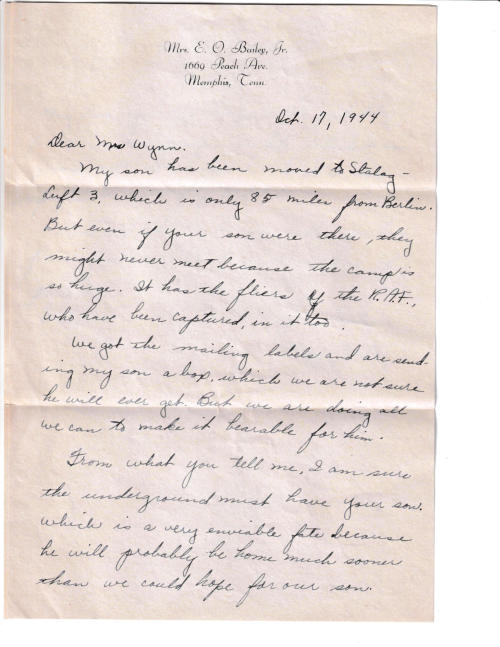 Mrs. E. O. Bailey, Jr.
1669 Peach Ave.
Memphis, Tenn.
Oct. 17, 1944
Dear Mrs Wynn.
My son has been moved to Stalag-
Luft 3, which is only 85 miles from Berlin.
But even if your son were there, they
might never meet because the camp is
so huge. It has the fliers of the R.A.F.,
who have been captured, in it too.
We got the mailing labels and are send-
ing my son a box, which we are not sure
he will ever get. But we are doing all
we can to make it bearable for him.
From what you tell me, I am sure
the underground must have your son.
which is a very enviable fate because
he will probably be home much sooner
than we could hope for our son.